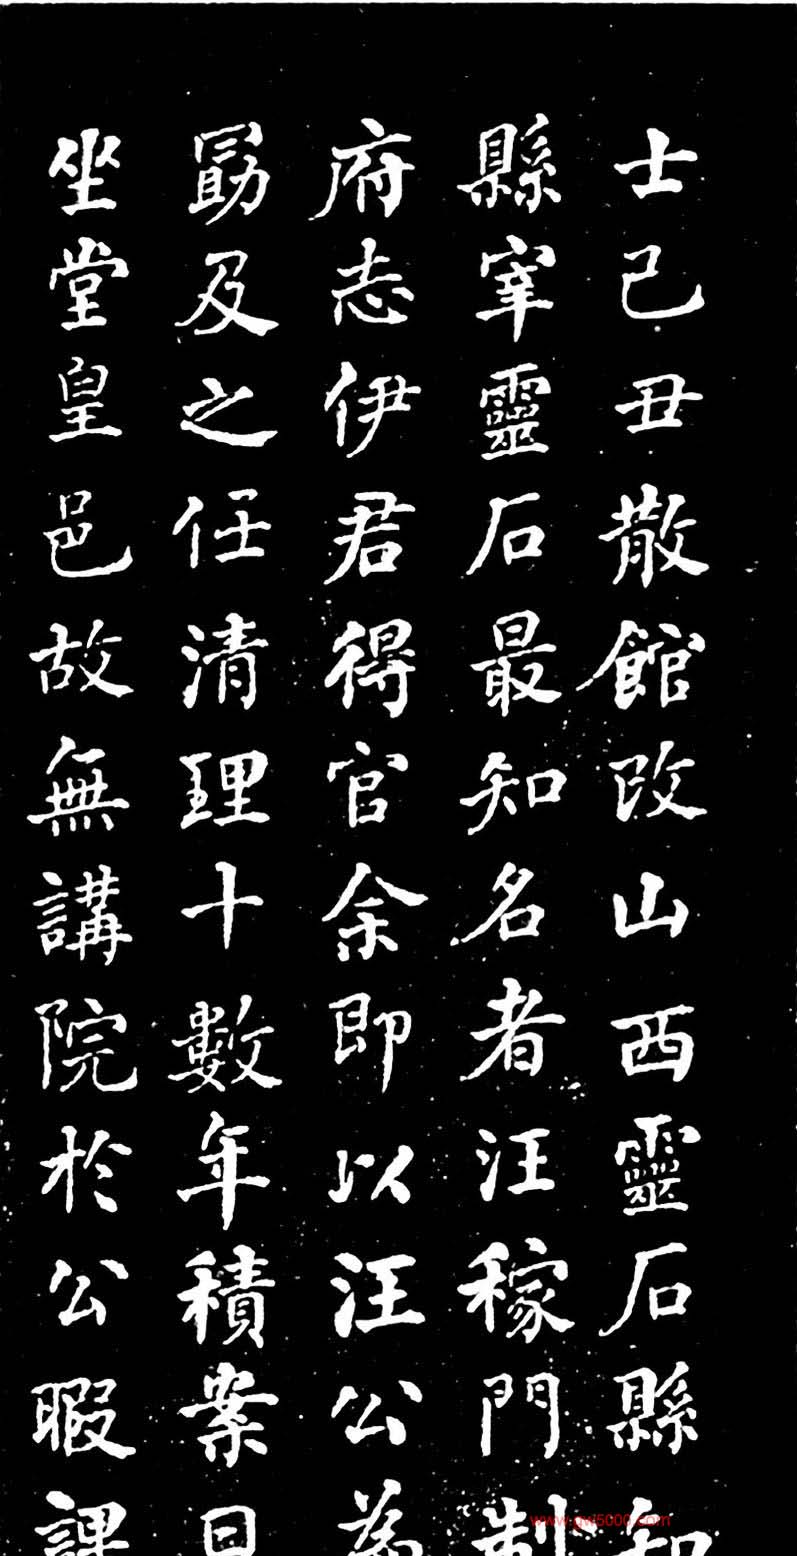 士己丑散館改山西靈石縣知
縣宰靈石最知名者汪稼門制
府志伊君得官余即以汪公為
勗及之任清理十數年積案日
坐堂皇邑故無講院於公暇課
www.gw5000.com